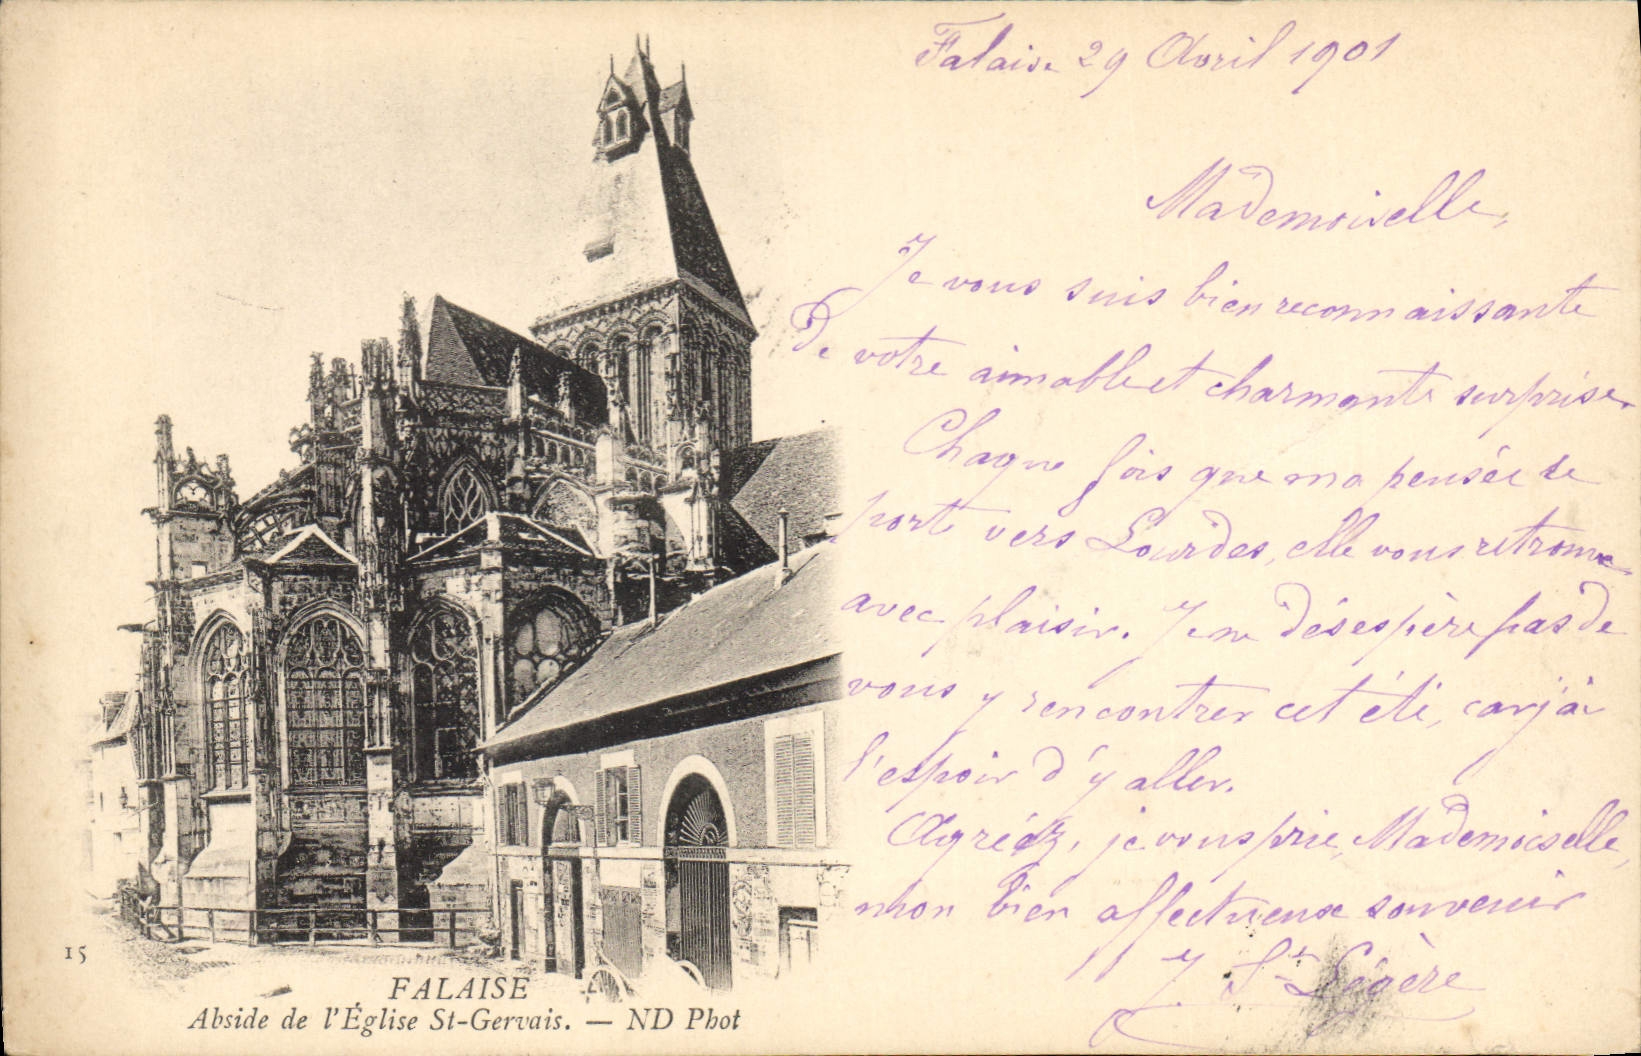 Falaise 29 Avril 1901
Mademoiselle,
Je vous suis bien reconnaissante
de votre aimable et charmante surprise.
Chaque fois que ma pensée se
porte vers Lourdes, elle vous retrouve
avec plaisir. Je ne désespère pas de
vous y rencontrer cet été, car j'ai
l'espoir d'y aller.
Agréez, je vous prie, Mademoiselle,
mon bien affectueux souvenir
J. St Légère
15
FALAISE
Abside de l'Église St-Gervais. — ND Phot